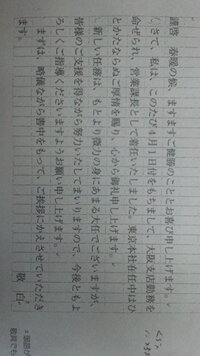 謹啓 春暖の候、ますますご健勝のこととお喜び申し上げます。
さて、私は、このたび4月1日付をもちまして、大阪支店勤務を
命ぜられ、営業課長として着任いたしました。東京本社在任中はひ
とかたならぬご厚情を賜り、心から御礼申し上げます。
新しい任務は、もとより微力の身にあまる大任でございますが、
皆様のご支援を得ながら努力いたしてまいりますので、今後ともよ
ろしくご指導くださいますようお願い申し上げます。
まずは、略儀ながら書中をもって、ご挨拶にかえさせていただき
ます。 敬白